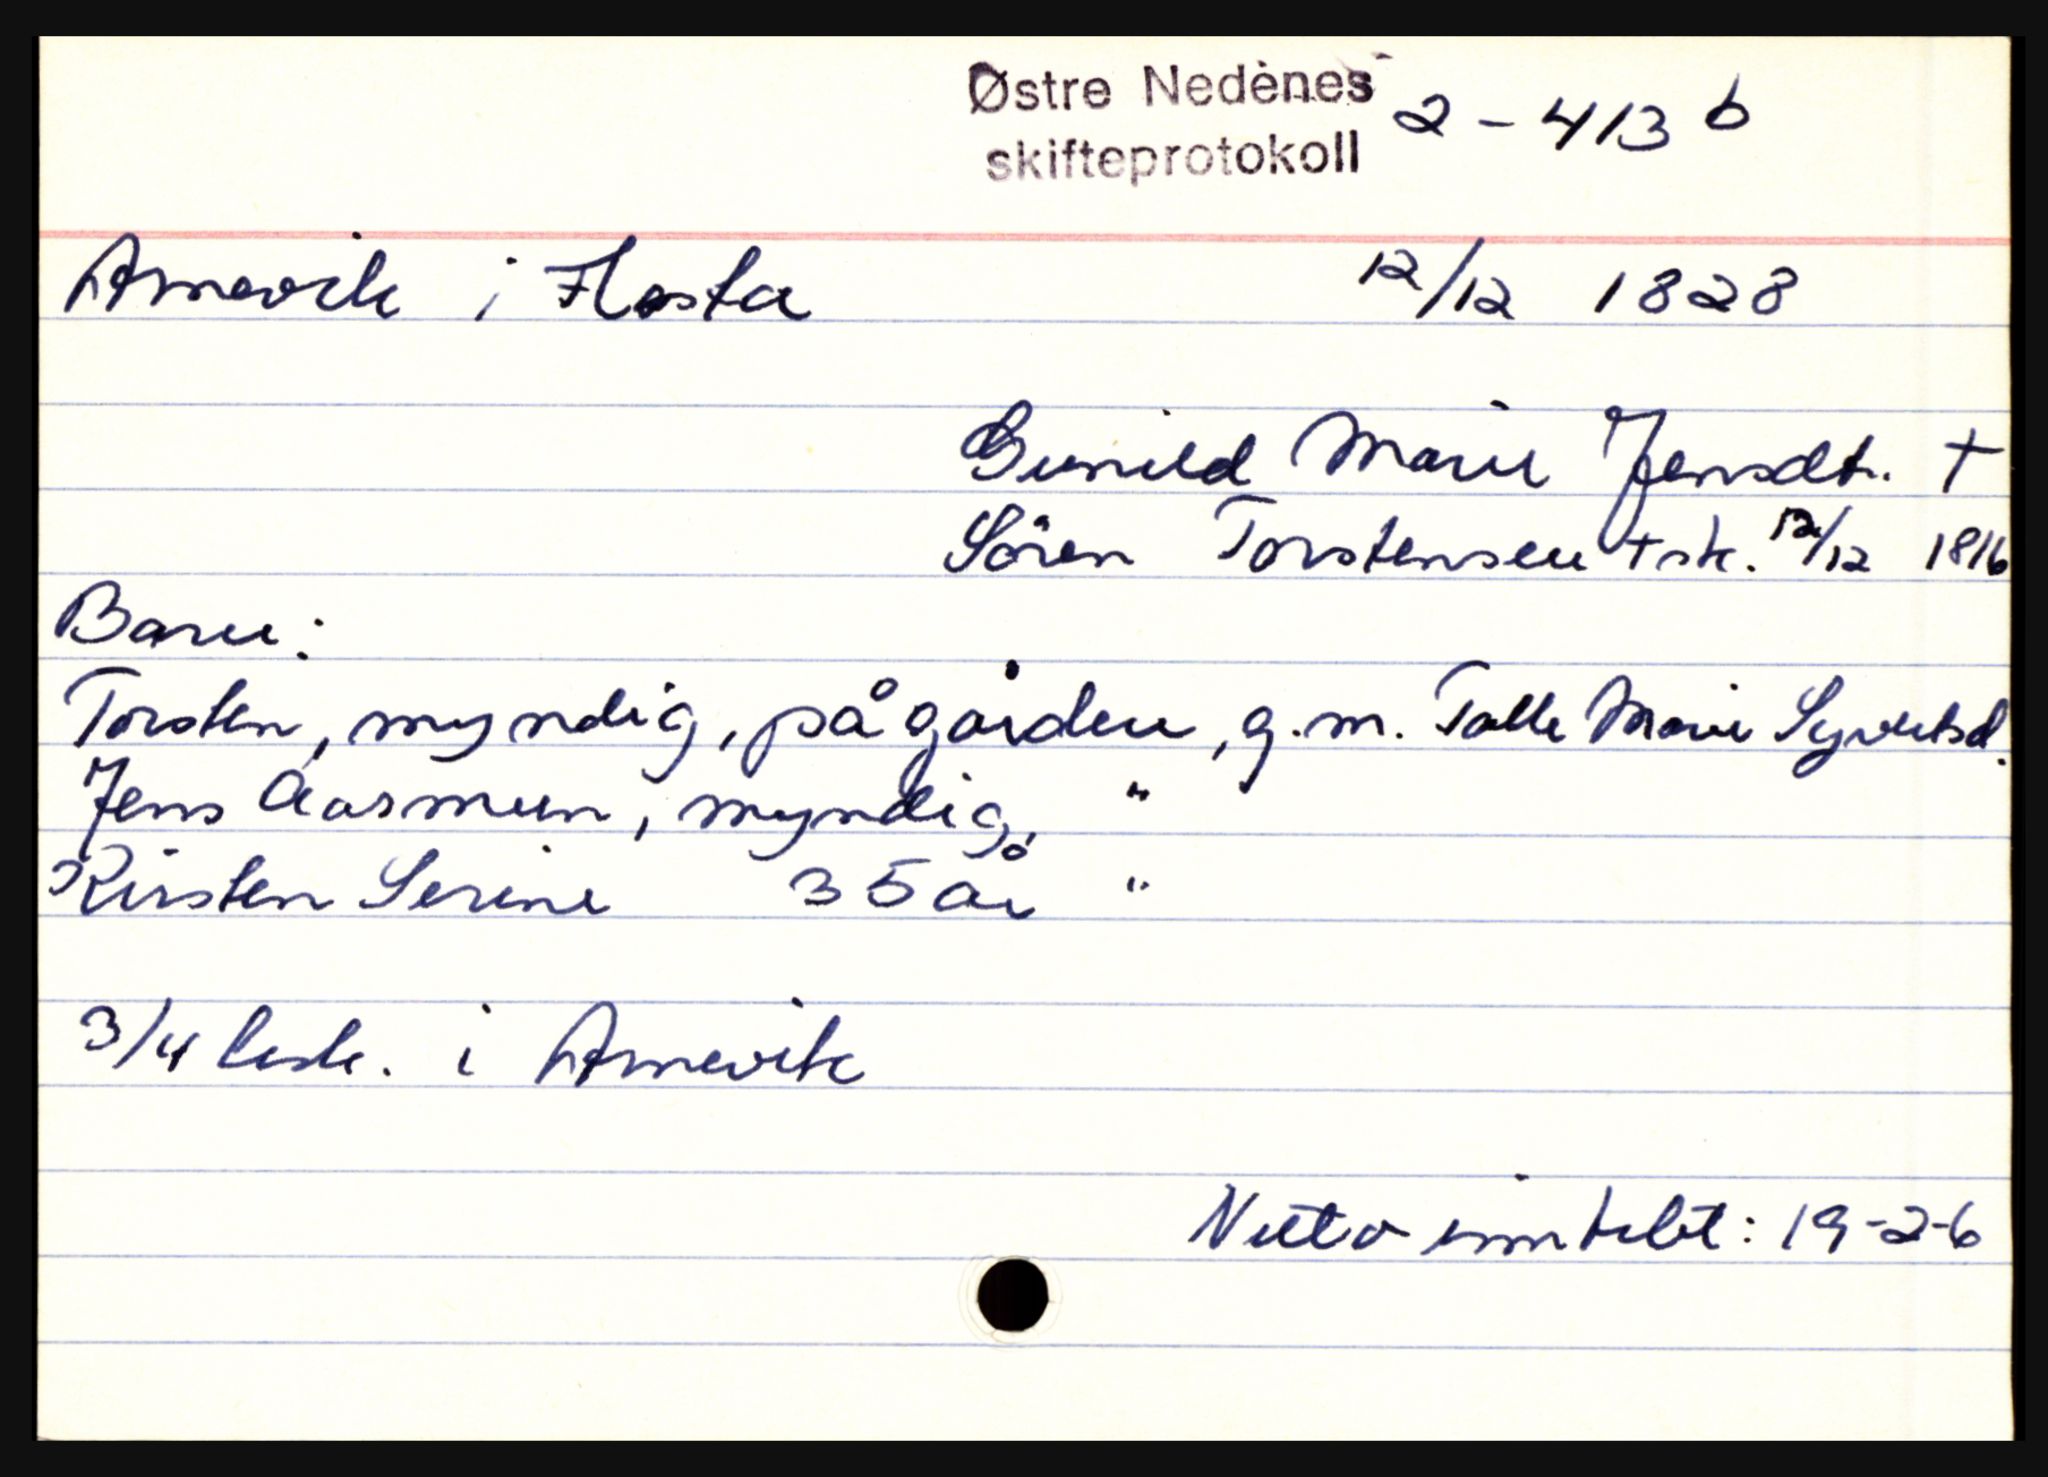 Østre Nedènes 2 - 413 b
skifteprotokoll
Arnevik i Flosta 12/12 1828
Gunild Marie Jensdt. †
Sören Torstensen † sk. 12/12 1816
Barn:
Torsten, myndig, på gården, g.m. Talle Marie Syvertsd.
Jens Aasmun, myndig, "
Kirsten Serine 35 år "
3/4 besk. i Arnevik
Netto inntekt: 19-2-6